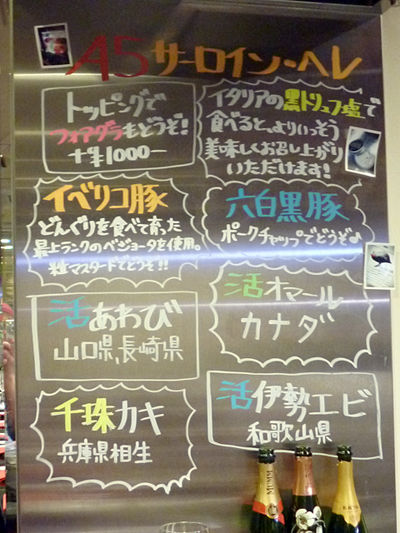 A5 サーロイン・ヘレ
トッピングで
フォアグラもどうぞ!
+¥1000-
イタリアの黒トリュフ塩で
食べると、よりいっそう
美味しくお召し上がり
いただけます!
イベリコ豚
どんぐりを食べて育った
最上ランクのベジョータを使用。
粒マスタードでどうぞ!!
六白黒豚
ポークチャップでどうぞ♪
活あわび
山口県、長崎県
活オマール
カナダ
千珠カキ
兵庫県相生
活伊勢エビ
和歌山県
MUMM